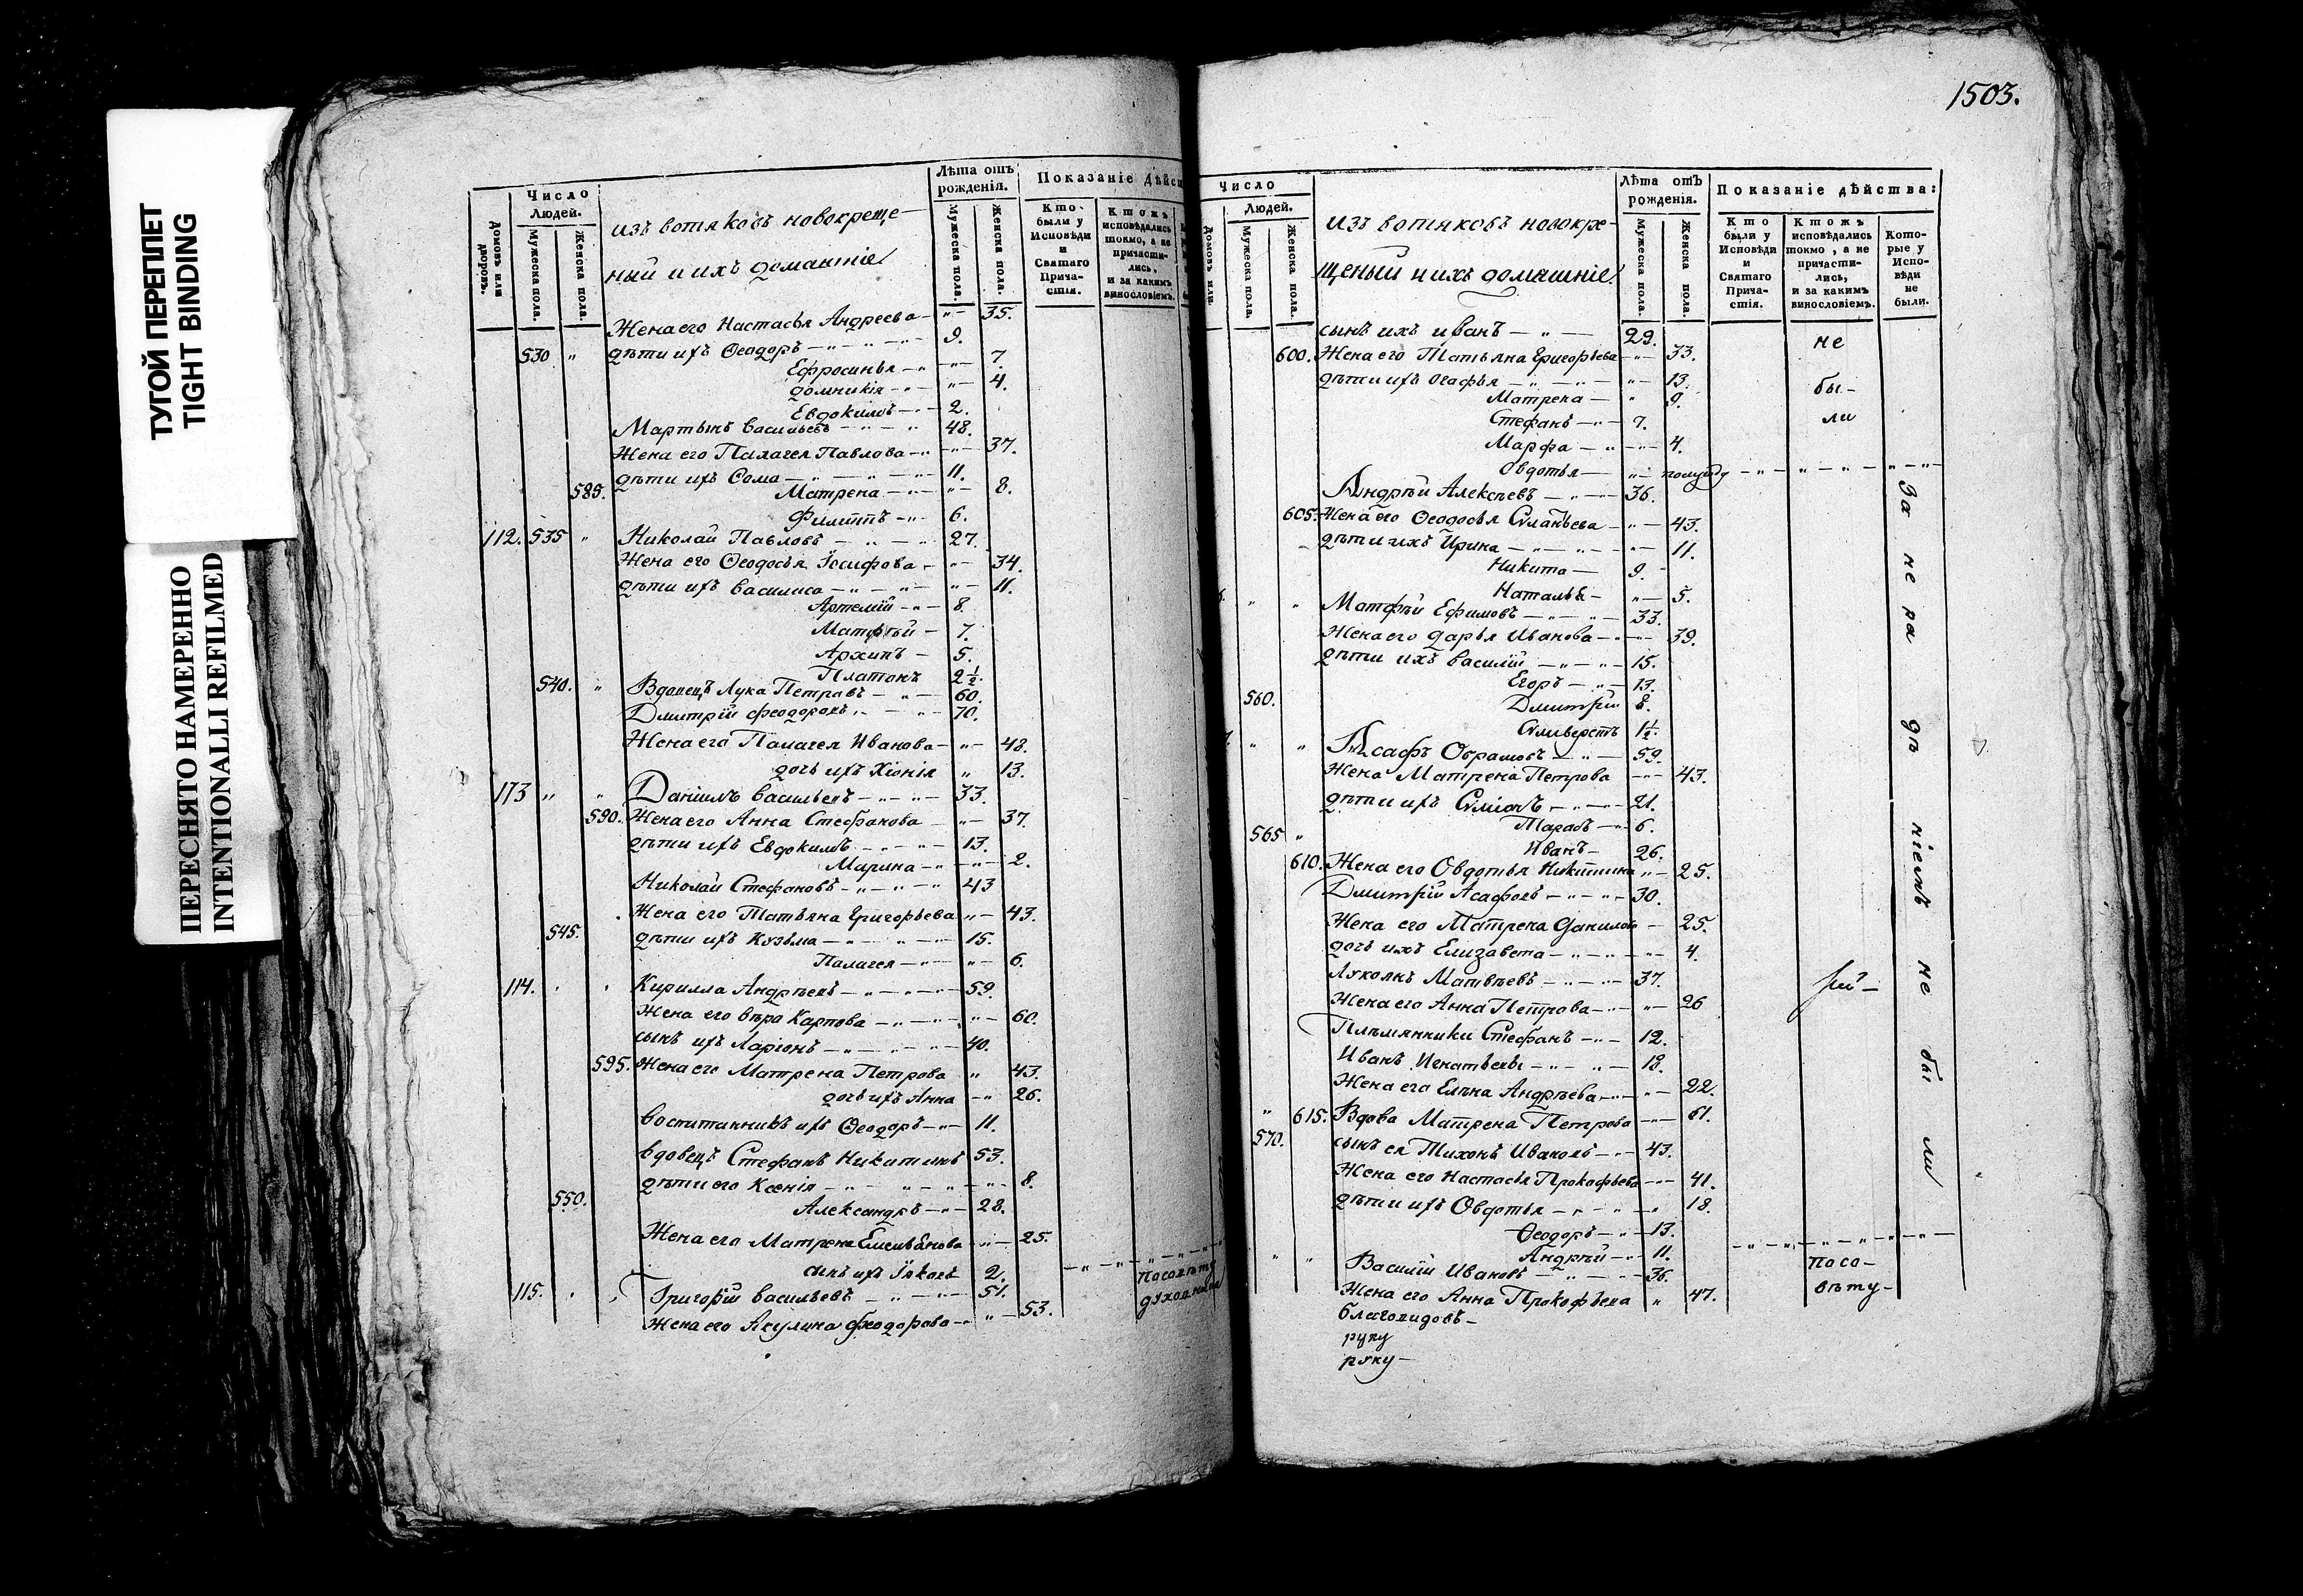 ТУГОЙ ПЕРЕПЛЕТ
TIGHT BINDING
ПЕРЕСНЯТО НАМЕРЕННО
INTENTIONALLI REFILMED
Домовъ или дворовъ.
Число
Людей.
Мужеска пола.
Женска пола.
изъ вотяковъ новокреще-
ный и ихъ домашніе
Лѣта отъ
рожденія.
Мужеска пола.
Женска пола.
Показаніе дѣйс
Кто
были у
Исповѣди
и
Святаго
Прича-
стія.
Ктожъ
исповѣдались
токмо, а не
причасти-
лись,
и за какимъ
винословіемъ.
Жена его Настасья Андреева — „ — 35.
530 „ дѣти ихъ Ѳеодоръ — „ — „ — „ — 9.
Ефросинья — „ — „ — 7.
домникія — „ — „ — 4.
Евдокимъ — „ — 2.
Мартынъ васильевъ — „ — „ 48.
Жена его Палагея Павлова — „ — „ — 37.
дѣти ихъ Сома — „ — „ — „ — 11.
585. Матрена — „ — „ — 8.
Филиппъ — „ — 6.
112. 535 „ Николай Павловъ — „ — „ 27.
Жена его Ѳеодосья Іосифова — „ — 34.
дѣти ихъ василиса — „ — „ — „ — 11.
Артемій — „ — 8.
Матфѣй — 7.
Архипъ — 5.
Платонъ 2½.
540. „ Вдовецъ Лука Петровъ — „ — 60.
Дмитрій феодоровъ — „ — 70.
Жена его Палагея Иванова — „ — 48.
дочь ихъ Хіонія „ 13.
173 „ „ Даніилъ васильевъ — „ — „ — 33.
590. Жена его Анна Стефанова — „ — 37.
дѣти ихъ Евдокимъ — „ — „ — 13.
Марина — „ — „ — 2.
Николай Стефановъ — „ — „ — „ 43
Жена его Татьяна Григорьева „ — 43.
545. дѣти ихъ Кузьма — „ — „ — „ — 15.
Палагея — „ — „ — 6.
114. Кирилла Андреевъ — „ — „ — „ — 59.
Жена его вѣра Карпова — „ — „ — „ — 60.
сынъ ихъ Ларіонъ — „ — „ — „ — 40.
595. Жена его Матрена Петрова „ 43.
дочь ихъ Анна — „ 26.
воспитанникъ ихъ Ѳеодоръ — „ — 11.
вдовецъ Стефанъ Никитинъ 53.
дѣти его Ксенія — „ — „ — „ — „ — 8.
550. Александръ — „ — 28.
Жена его Матрена — „ — 25.
сынъ ихъ Іаковъ 2.
115. Григорій васильевъ — „ — „ — 51.
Жена его Акулина феодорова — „ — 53.
посовѣту
духовника
1503.
Домовъ или
Число
Людей.
Мужеска пола.
Женска пола.
изъ вотяковъ новокре-
щеный и ихъ домашніе
Лѣта отъ
рожденія.
Мужеска пола.
Женска пола.
Показаніе дѣйства:
Кто
были у
Исповѣди
и
Святаго
Прича-
стія.
Ктожъ
исповѣдались
токмо, а не
причасти-
лись,
и за какимъ
винословіемъ.
Кото-
рые у
Испо-
вѣди
не
были.
сынъ ихъ иванъ — „ — 29. не
600. Жена его Татьяна Григорьева — „ — 33.
дѣти ихъ Огафья — „ — „ — „ — 13. бы-
Матрена — „ 9.
Стефанъ — „ — 7. ли
Марфа — „ — „ — 4.
Овдотья — „ — полугоду
Андрѣй Алексеевъ — „ — 36.
605. Жена его Ѳеодосья — „ — 43.
дѣти ихъ Ирина — „ — „ — „ — 11.
Никита — 9.
Наталья — „ — 5.
„ „ Матфѣй Ефимовъ — „ — „ — 33.
Жена его дарья Иванова — „ — 39.
дѣти ихъ василій — „ — „ — 15.
Егоръ — „ — 13.
560. Дмитрій 8.
Силиверстъ 1½.
„ „ Асафъ Обрамовъ — „ — 59.
Жена Матрена Петрова — „ — 43.
дѣти ихъ — „ — 21.
Тарасъ — „ 6.
565 „ Иванъ — 26.
610. Жена его Овдотья Никитина „ — 25.
Дмитрій Асафовъ — „ — „ — 30.
Жена его Матрена Данилова — 25.
дочь ихъ Елизавета — „ — „ — „ — 4.
Лукоянъ Матвѣевъ — „ — „ — 37.
Жена его Анна Петрова — „ — „ — 26
Племянники Стефанъ — „ — 12.
Иванъ Игнатьевъ — „ — „ — 18.
Жена его Елена Андрѣева — „ — „ — 22.
„ 615. Вдова Матрена Петрова — „ — 61.
570. сынъ ея Тихонъ Ивановъ — „ — 43.
Жена его Настасья Прокофьева — „ — 41.
дѣти ихъ Овдотья — „ — „ — „ 18.
Ѳеодоръ — „ — 13.
Андрѣй — „ — 11.
„ „ Василій Ивановъ — „ — 36. посо-
Жена его Анна Прокофьева „ 47. вѣту-
За не ра дѣ ніемъ не бы ли
руку